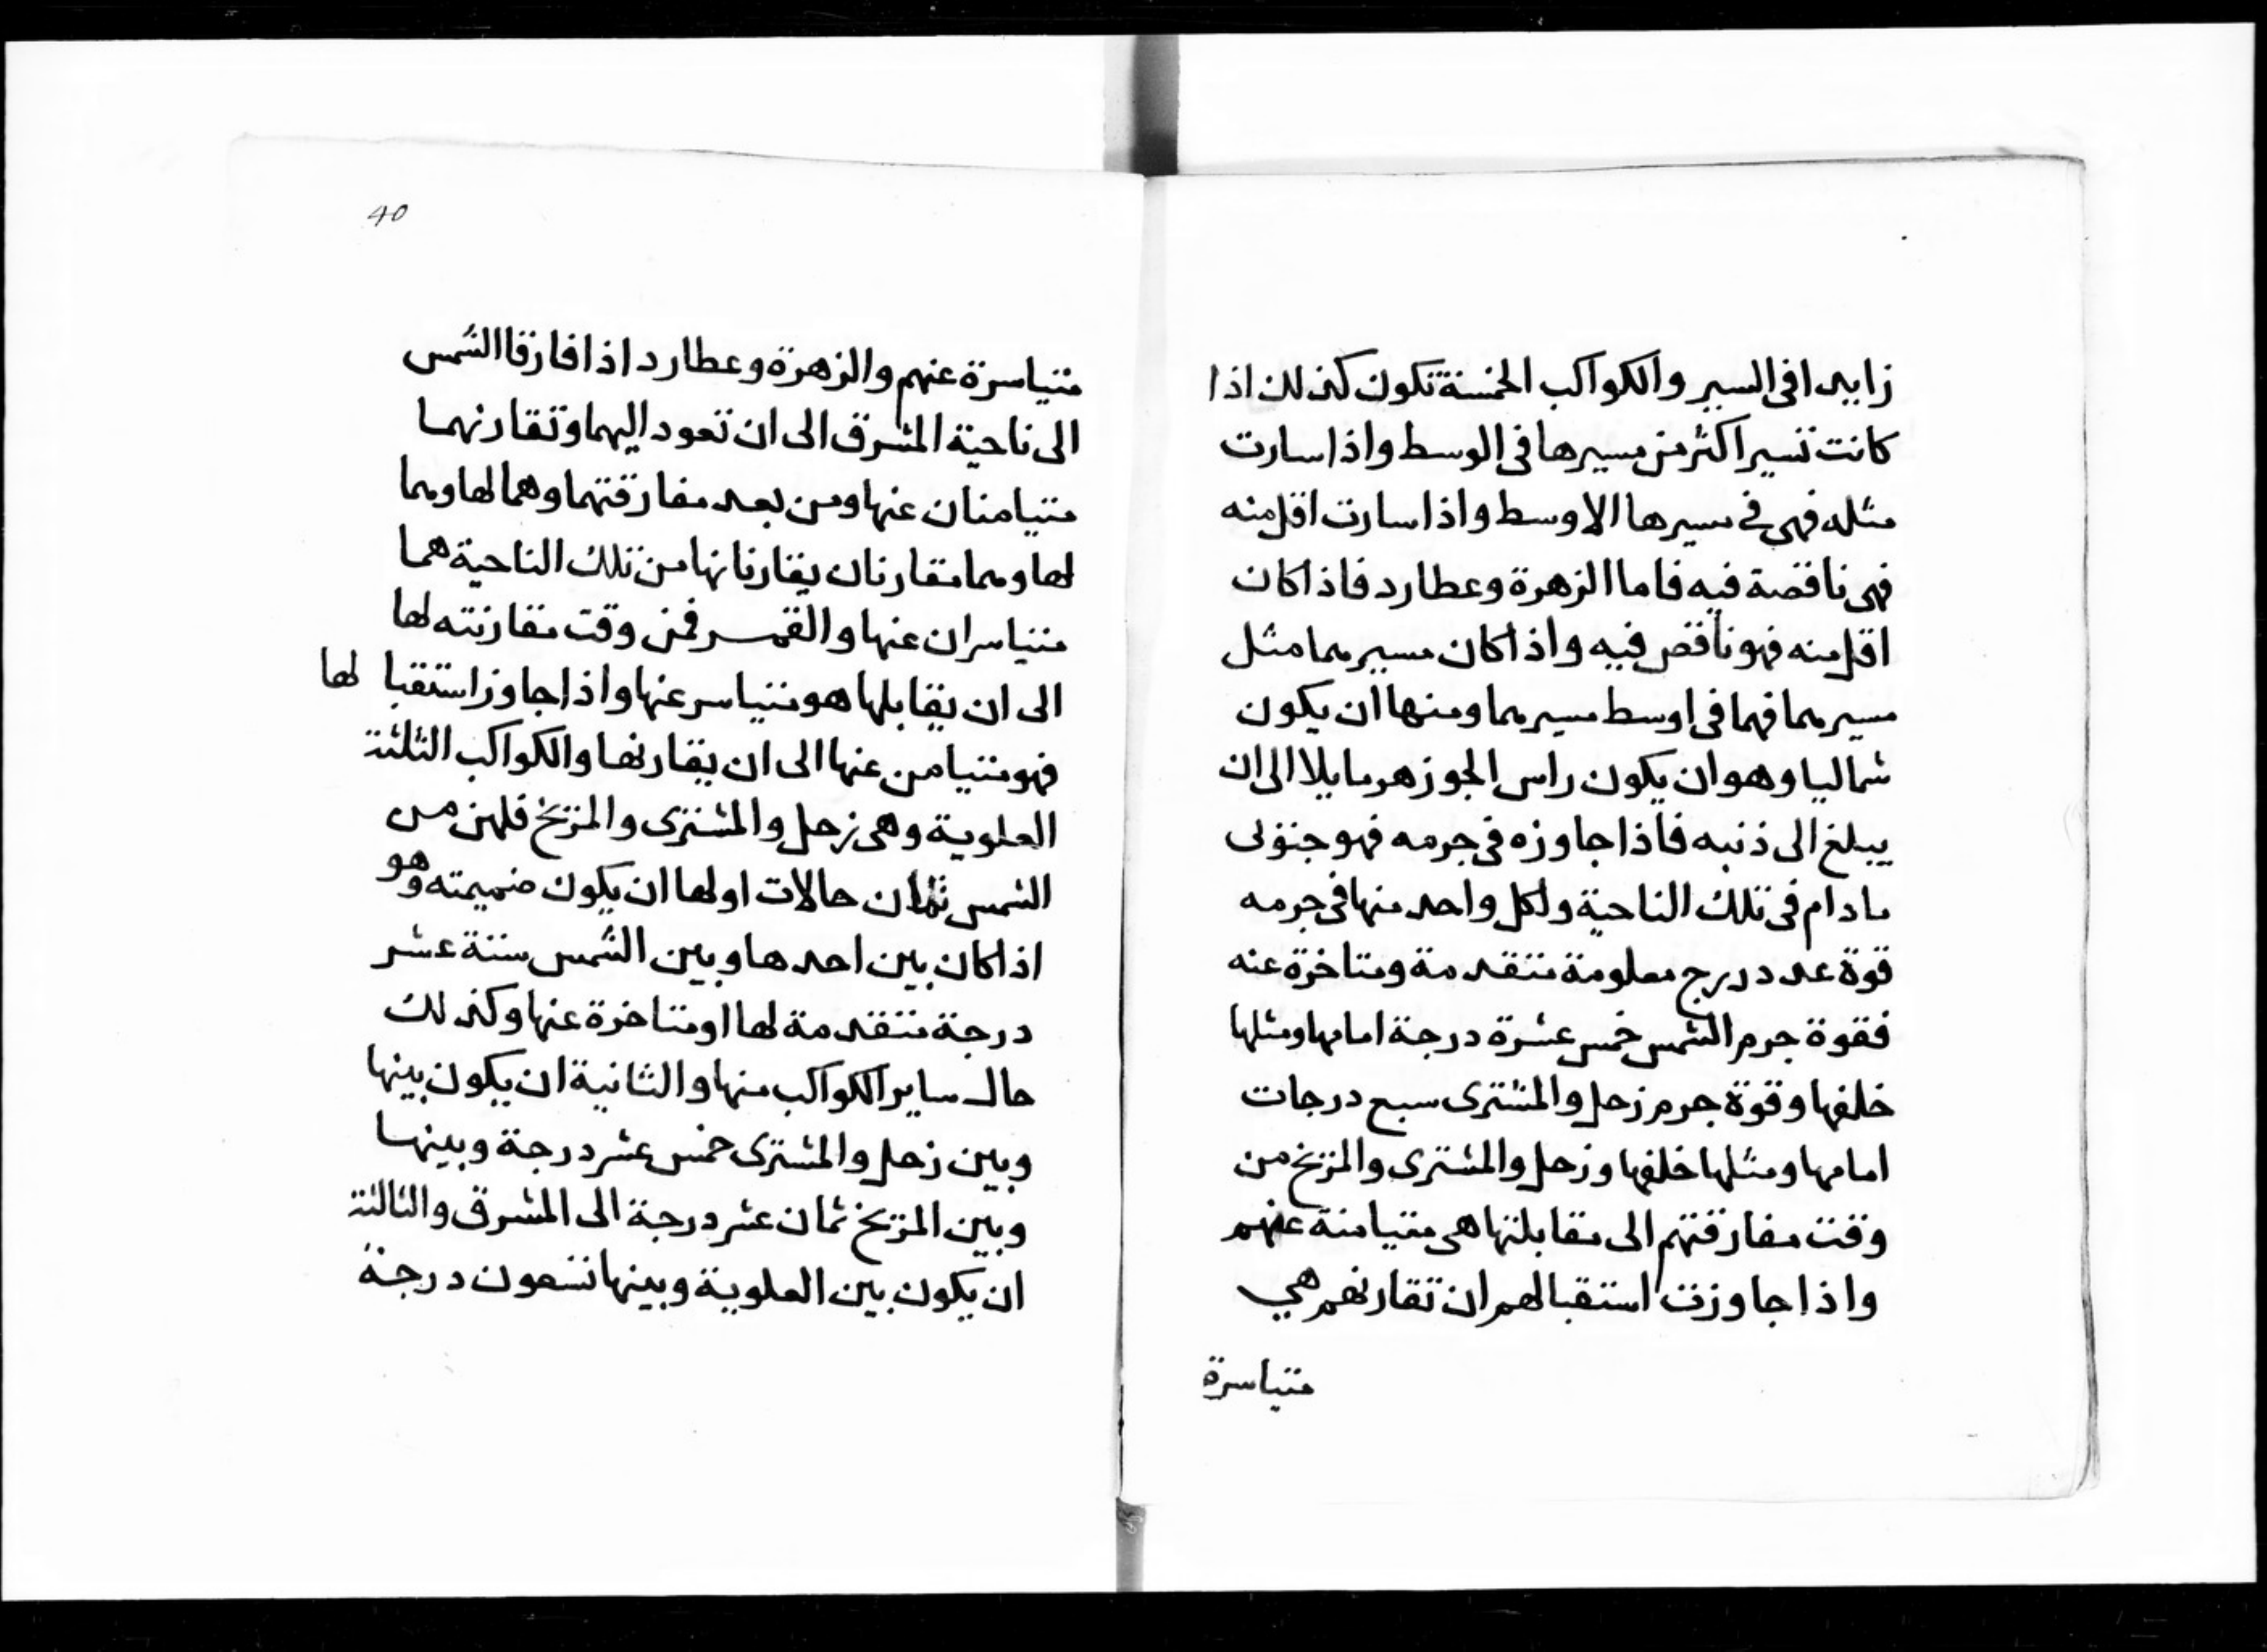 زايدا فى السير والكواكب الخمسة تكون كذلك اذا
كانت تسير اكثر من مسيرها فى الوسط واذا سارت
مثله فهى فى مسيرها الاوسط واذا سارت اقل منه
فهى ناقصة فيه فاما الزهرة وعطارد فاذا كان
اقل منه فهو ناقص فيه واذا كان مسيرهما مثل
مسيرهما فهما فى اوسط مسيرهما ومنها ان يكون
شماليا وهو ان يكون راس الجوزهر مايلا الى ان
يبلغ الى ذنبه فاذا جاوزه فى جرمه فهو جنوبى
ما دام فى تلك الناحية ولكل واحد منها فى جرمه
قوة عدد درج معلومة متقدمة ومتاخرة عنه
فقوة جرم الشمس خمس عشرة درجة امامها ومثلها
خلفها وقوة جرم زحل والمشترى سبع درجات
امامها ومثلها خلفها وزحل والمشترى والمريخ من
وقت مفارقتهم الى مقابلتها هى متيامنة عنهم
واذا جاوزت استقبالهم ان تقارنهم هي
متياسرة
40
متياسرة عنهم والزهرة وعطارد اذا فارقا الشمس
الى ناحية المشرق الى ان تعود اليهما وتقارنهما
متيامنان عنها ومن بعد مفارقتهما وهما لها وهما
لها وهما مقارنان يقارنانها من تلك الناحية هما
متياسران عنها والقمر فمن وقت مقارنته لها
الى ان يقابلها هو متياسر عنها واذا جاوز استقبا لها
فهو متيامن عنها الى ان يقارنها والكواكب الثلثة
العلوية وهى زحل والمشترى والمريخ فلهن من
الشمس ثمان حالات اولها ان يكون ضميمته وهو
اذا كان بين احدها وبين الشمس ستة عشر
درجة متقدمة لها او متاخرة عنها وكذلك
حال ساير الكواكب منها والثانية ان يكون بينها
وبين زحل والمشترى خمس عشر درجة وبينها
وبين المريخ ثمان عشر درجة الى المشرق والثالثة
ان يكون بين العلوية وبينها تسعون درجة